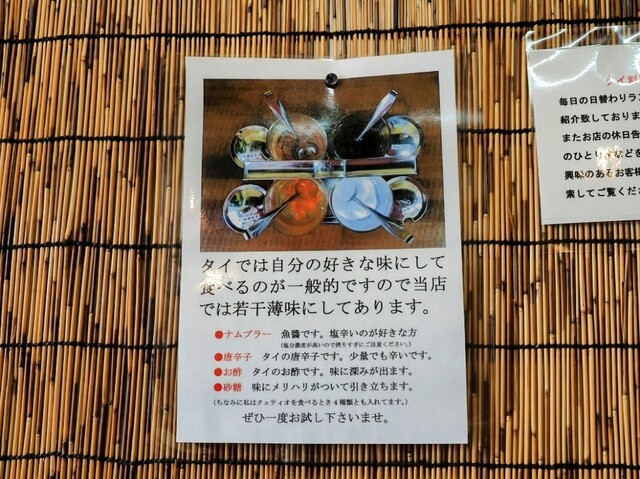 タイでは自分の好きな味にして
食べるのが一般的ですので当店
では若干薄味にしてあります。
●ナムプラー 魚醬です。塩辛いのが好きな方
(塩分濃度が高いので摂りすぎにご注意ください。)
●唐辛子 タイの唐辛子です。少量でも辛いです。
●お酢 タイのお酢です。味に深みが出ます。
●砂糖 味にメリハリがついて引き立ちます。
(ちなみに私はクェティオを食べるとき4種類とも入れてます。)
ぜひ一度お試し下さいませ。
タイ
毎日の日替わりラン
紹介致しておりま
またお店の休日告
のひとり
などを
興味のあるお客様
索してご覧くださ